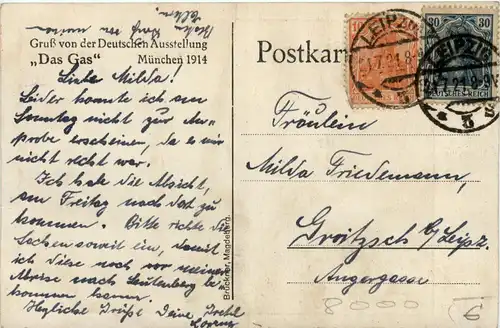 Gruß von der Deutschen Ausstellung
„Das Gas" München 1914
Liebe Milda!
Leider konnte ich am
Sonntag nicht zur An-
probe erscheinen, da es mir
nicht recht war.
Ich habe die Absicht,
am Freitag nach dort zu
kommen. Bitte richte die
Sachen soweit ein, damit
ich diese noch vor meiner
Abreise nach Lautenberg be-
kommen kann.
Herzliche Grüße Deine
Brückner, Magdeburg.
Postkarte
LEIPZIG
7.21.8-
LEIPZIG
7.21.8-9
30 30
DEUTSCHES REICH
* 5 S
Fräulein
Milda Friedemann,
Groitzsch b/Leipz.
Angergasse
8000
6